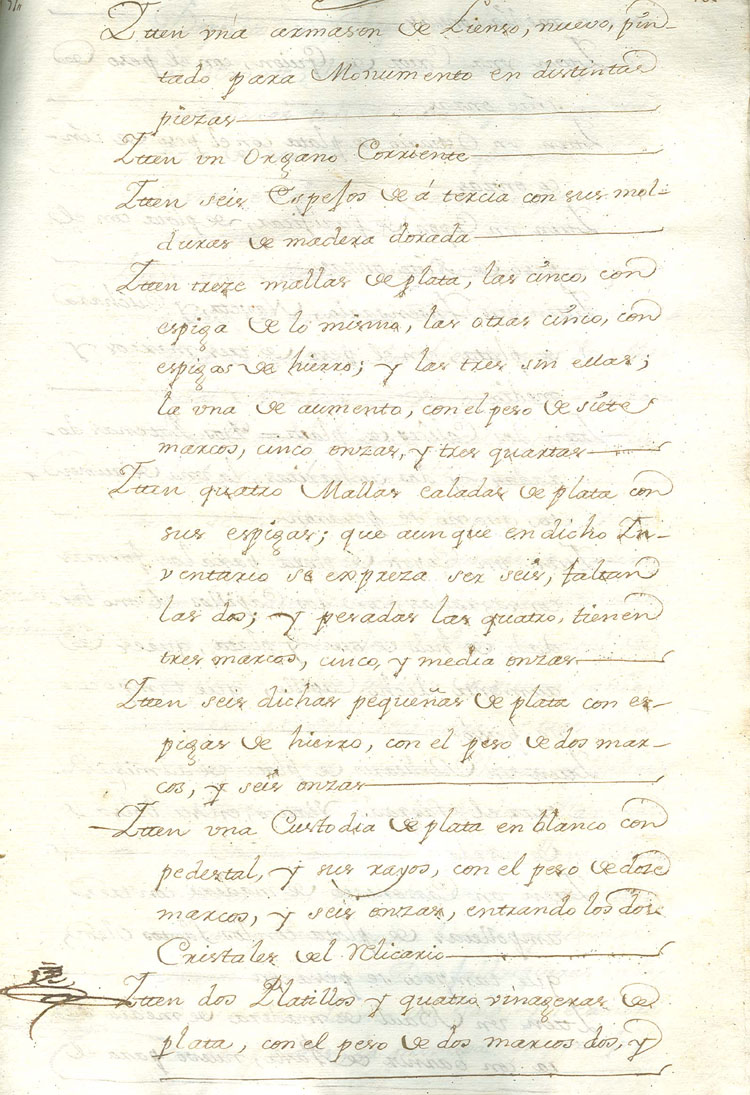 Itten vna armason de Lienso, nuevo, pin-
tado para Monumento en distintas
piezas
Itten vn Organo Corriente
Itten seis Espejos de á tercia con sus mol-
duras de madera dorada
Itten treze mallas de plata, las cinco, con
espiga de lo mismo, las otras cinco, con
espigas de hierro; y las tres sin ellas;
la vna de aumento, con el peso de siete
marcos, cinco onzas, y tres quartas
Itten quatro Mallas caladas de plata con
sus espigas; que aunque en dicho In-
ventario se expreza ser seis, faltan
las dos; y pesadas las quatro, tienen
tres marcos, cinco, y media onzas
Itten seis dichas pequeñas de plata con es-
pigas de hierro, con el peso de dos mar-
cos, y seis onzas
Itten vna Custodia de plata en blanco con
pedestal, y sus rayos, con el peso de doze
marcos, y seis onzas, entrando los dos
Cristales del Viricario
Itten dos Platillos y quatro vinageras de
plata, con el peso de dos marcos dos, y